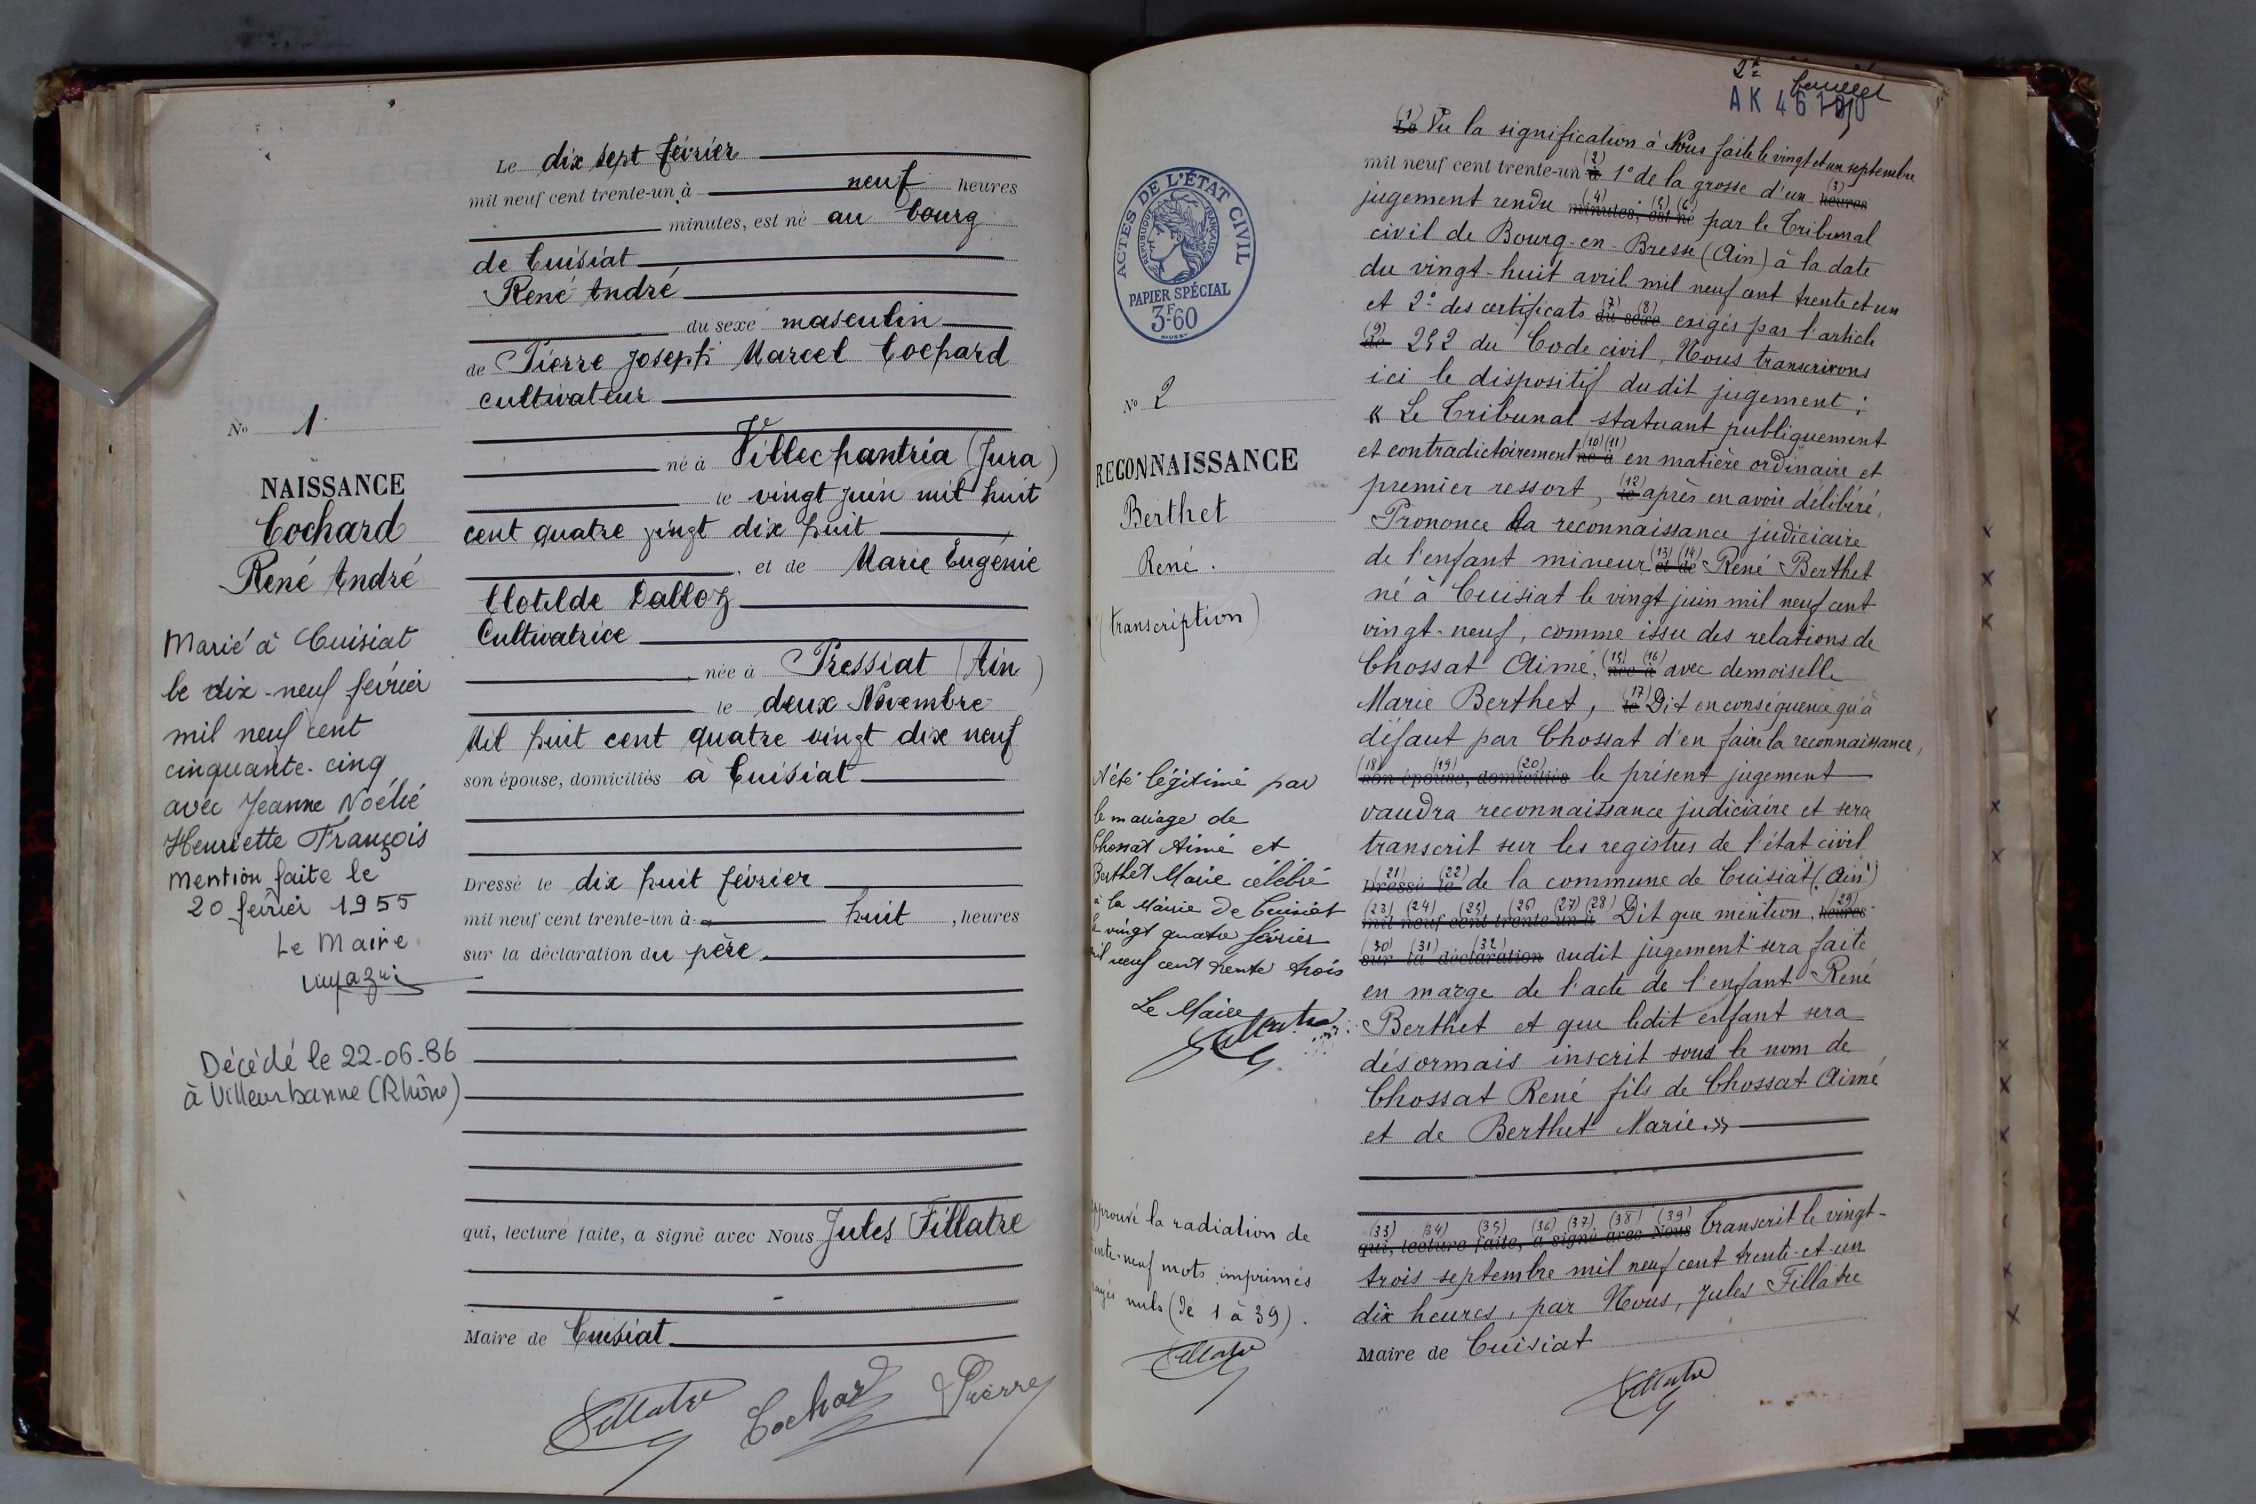 Le dix sept février
mil neuf cent trente-un à neuf heures
minutes, est né au bourg
de Cuisiat
René André
du sexe masculin
de Pierre Joseph Marcel Cochard
cultivateur
né à Villechantria (Jura)
le vingt juin mil huit
cent quatre vingt dix huit
, et de Marie Eugénie
Clotilde Dalloz
Cultivatrice
, née à Pressiat (Ain)
le deux Novembre
Mil huit cent quatre vingt dix neuf
son épouse, domiciliés à Cuisiat
Dressé le dix huit février
mil neuf cent trente-un à huit, heures
sur la déclaration du père
qui, lecture faite, a signé avec Nous Jules Fillatre
Maire de Cuisiat
Fillatre Cochard Pierre
No 1
NAISSANCE
Cochard
René André
Marié à Cuisiat
le dix-neuf février
mil neuf cent
cinquante-cinq
avec Jeanne Noélie
Henriette François
mention faite le
20 février 1955
Le Maire
Décédé le 22-06-86
à Villeurbanne (Rhône)
2e
AK 46180
ACTES DE L'ÉTAT CIVIL
RÉPUBLIQUE FRANÇAISE
PAPIER SPÉCIAL
3F60
No 2
RECONNAISSANCE
Berthet
René.
(transcription)
A été légitimé par
le mariage de
Chossat Aimé et
Berthet Marie célébré
à la Mairie de Cuisiat
le vingt quatre février
mil neuf cent trente trois
Le Maire
Fillatre
Approuvé la radiation de
trente-neuf mots imprimés
rayés nuls (de 1 à 39).
Fillatre
(1) Le Vu la signification à Nous faite le vingt et un septembre
mil neuf cent trente-un (2) à 1° de la grosse d'un (3) heures
jugement rendu (4) (5) (6) minutes, est né par le Tribunal
civil de Bourg-en-Bresse (Ain) à la date
du vingt-huit avril mil neuf cent trente et un
et 2° des certificats (7) (8) du sexe exigés par l'article
(9) de 252 du Code civil, Nous transcrivons
ici le dispositif dudit jugement :
« Le Tribunal statuant publiquement
et contradictoirement (10) (11) né à en matière ordinaire et
premier ressort, (12) le après en avoir délibéré,
Prononce la reconnaissance judiciaire
de l'enfant mineur (13) (14) et de René Berthet
né à Cuisiat le vingt juin mil neuf cent
vingt-neuf, comme issu des relations de
Chossat Aimé, (15) (16) née à avec demoiselle
Marie Berthet, (17) le Dit en conséquence qu'à
défaut par Chossat d'en faire la reconnaissance,
(18) (19) (20) son épouse, domiciliés le présent jugement
vaudra reconnaissance judiciaire et sera
transcrit sur les registres de l'état civil
(21) (22) Dressé le de la commune de Cuisiat (Ain)
(23) (24) (25) (26) (27) (28) mil neuf cent trente-un à Dit que mention, (29) heures
(30) (31) (32) sur la déclaration dudit jugement sera faite
en marge de l'acte de l'enfant René
Berthet et que ledit enfant sera
désormais inscrit sous le nom de
Chossat René fils de Chossat Aimé
et de Berthet Marie.»
(33) (34) (35) (36) (37) (38) (39) qui, lecture faite, a signé avec Nous Transcrit le vingt-
trois septembre mil neuf cent trente-et-un
dix heures, par Nous, Jules Fillatre
Maire de Cuisiat
Fillatre